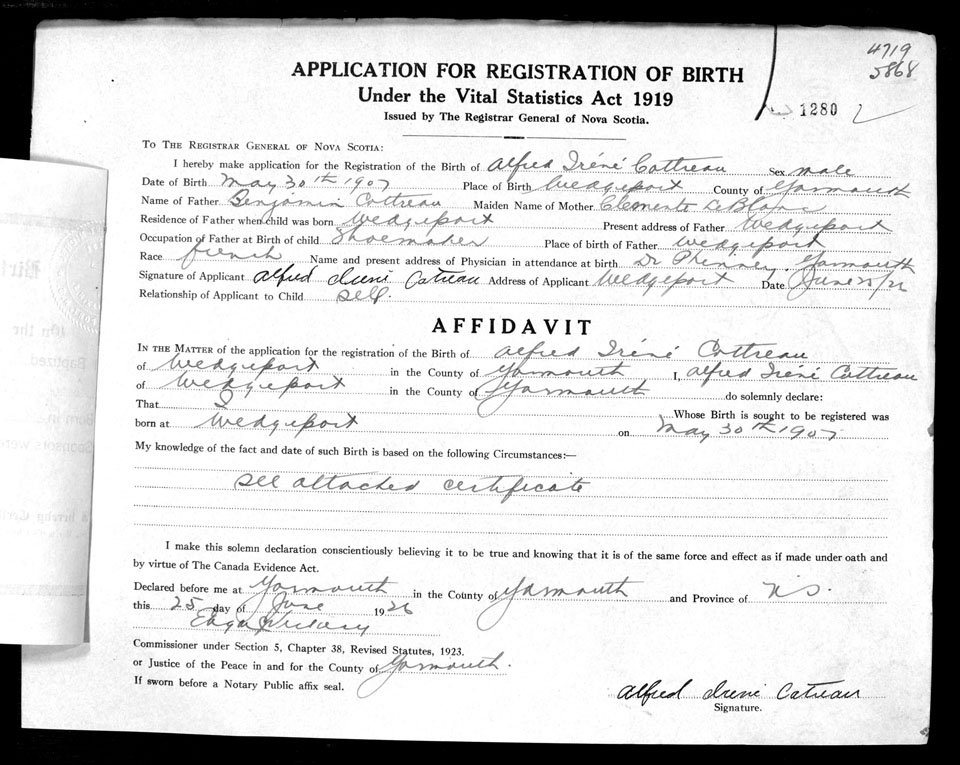 4719
5868
APPLICATION FOR REGISTRATION OF BIRTH
Under the Vital Statistics Act 1919
Issued by The Registrar General of Nova Scotia.
1280
TO THE REGISTRAR GENERAL OF NOVA SCOTIA:
I hereby make application for the Registration of the Birth of Alfred Iréné Cottreau Sex male
Date of Birth May 30th 1907 Place of Birth Wedgeport County of Yarmouth
Name of Father Benjamin Cottreau Maiden Name of Mother Clemente LeBlanc
Residence of Father when child was born Wedgeport Present address of Father Wedgeport
Occupation of Father at Birth of child Shoemaker Place of birth of Father Wedgeport
Race french Name and present address of Physician in attendance at birth Dr Phinney, Yarmouth
Signature of Applicant Alfred Irené Catreau Address of Applicant Wedgeport Date June
Relationship of Applicant to Child self.
AFFIDAVIT
IN THE MATTER of the application for the registration of the Birth of Alfred Iréné Cottreau
of Wedgeport in the County of Yarmouth I, Alfred Iréné Cottreau
of Wedgeport in the County of Yarmouth do solemnly declare:
That I Whose Birth is sought to be registered was
born at Wedgeport on May 30th 1907
My knowledge of the fact and date of such Birth is based on the following Circumstances:—
see attached certificate
I make this solemn declaration conscientiously believing it to be true and knowing that it is of the same force and effect as if made under oath and
by virtue of The Canada Evidence Act.
Declared before me at Yarmouth in the County of Yarmouth and Province of NS.
this 25 day of June 1926
Commissioner under Section 5, Chapter 38, Revised Statutes, 1923.
or Justice of the Peace in and for the County of Yarmouth.
If sworn before a Notary Public affix seal.
Alfred Irené Catreau
Signature.